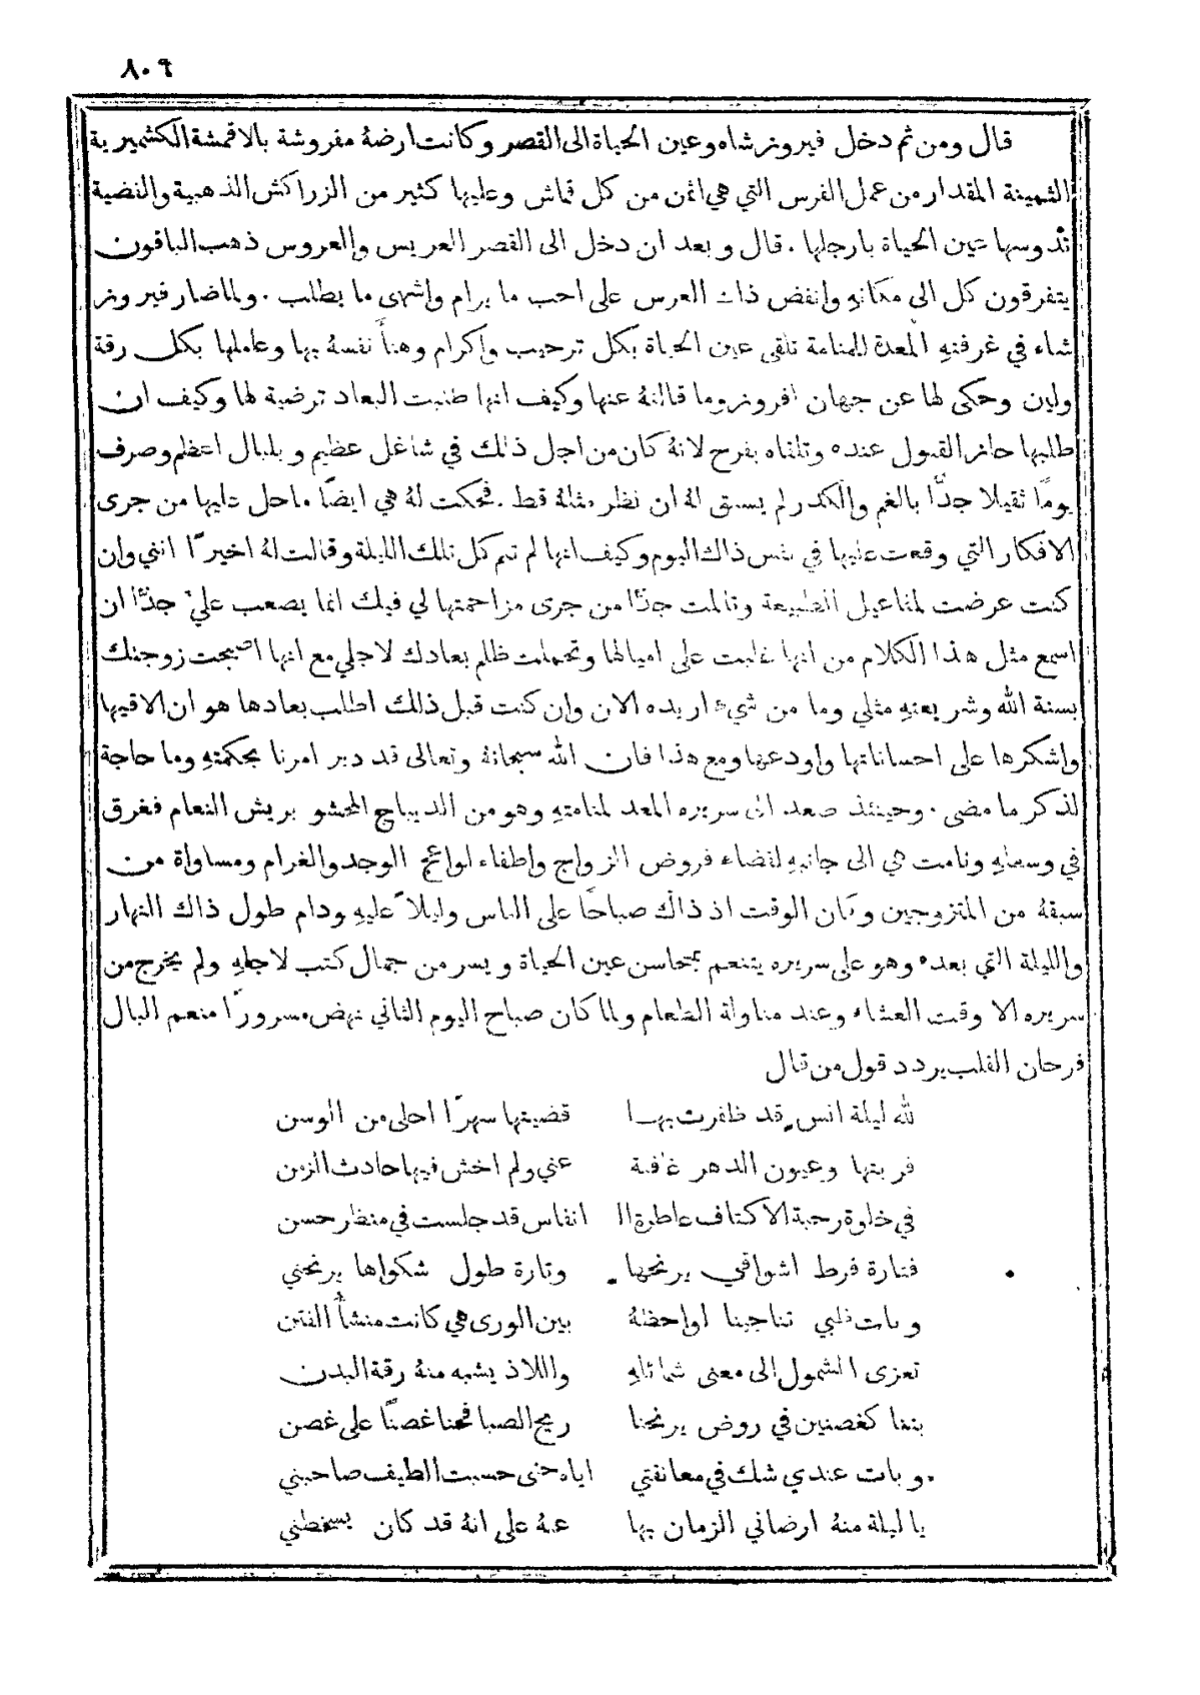 ٨٠٩
قال ومن ثم دخل فيروزشاه وعين الحياة الى القصر وكانت ارضهُ مفروشة بالاقمشة الكشميرية
الثمينة المقدار من عمل الفرس التي هي اثمن من كل قماش وعليها كثير من الزراكش الذهبية والفضية
تدوسها عين الحياة بارجلها . قال وبعد ان دخل الى القصر العريس والعروس ذهب الباقون
يتفرقون كل الى مكانهِ وانفض ذاك العرس على احب ما يرام واشهى ما يطلب . ولما صار فيروز
شاه في غرفتهِ المعدة للمنامة تلقى عين الحياة بكل ترحيب واكرام وهنأ نفسهُ بها وعاملها بكل رقة
ولين وحكى لها عن جهان افروز وما قالتهُ عنها وكيف انها طلبت البعاد ترضية لها وكيف ان
طلبها حاز القبول عنده وتلقاه بفرح لانهُ كان من اجل ذلك في شاغل عظيم وبلبال اعظم وصرف
يومًا ثقيلا جدًّا بالغم والكدر لم يسبق لهُ ان نظر مثلهُ قط . فحكت لهُ هي ايضًا ما حل عليها من جرى
الافكار التي وقعت عليها في نفس ذاك اليوم وكيف انها لم تنم كل تلك الليلة وقالت لهُ اخيرًا انني وان
كنت عرضت لمفاعيل الطبيعة وتالمت جدًّا من جرى مزاحمتها لي فيك انما يصعب عليَّ جدًّا ان
اسمع مثل هذا الكلام من انها غلبت على اميالها وتحملت ظلم بعادك لاجلي مع انها اصبحت زوجتك
بسنة الله وشريعتهِ مثلي وما من شيء اريده الان وان كنت قبل ذلك اطلب بعادها هو ان الاقيها
واشكرها على احساناتها واودعها ومع هذا فان الله سبحانهُ وتعالى قد دبر امرنا بحكمتهِ وما حاجة
لذكر ما مضى . وحينئذ صعد الى سريره المعد لمنامتهِ وهو من الديباج المحشو بريش النعام فغرق
في وسطهِ ونامت هي الى جانبهِ لقضاء فروض الزواج واطفاء لواعج الوجد والغرام ومساواة من
سبقهُ من المتزوجين وكان الوقت اذ ذاك صباحًا على الناس وليلاً عليهِ ودام طول ذاك النهار
والليلة التي بعده وهو على سريره يتنعم بمحاسن عين الحياة ويسر من جمال كتب لاجلهِ ولم يخرج من
سريره الا وقت العشاء وعند مناولة الطعام ولما كان صباح اليوم الثاني نهض مسرورًا منعم البال
فرحان القلب يردد قول من قال
لله ليلة انس قد ظفرت بها    قضيتها سهرًا احلى من الوسن
قربتها وعيون الدهر غافلة    عني ولم اخش فيها حادث الزمن
في خلوة رحبة الاكناف عاطرة ال    انفاس قد جلست في منظر حسن
فتارة فرط اشواقي يرنحها    وتارة طول شكواها يرنحني
وبات قلبي تناجينا لواحظهُ    بين الورى هي كانت منشأ الفتن
تعزى الشمول الى معنى شمائلهِ    واللاذ يشبه منهُ رقة البدن
بتنا كغصنين في روض يرنحنا    ريح الصبا فحنا غصنًا على غصن
وبات عندي شك في معانقتي    اياه حتى حسبت الطيف صاحبني
يا ليلة منهُ ارضاني الزمان بها    عنهُ على انهُ قد كان يسخطني